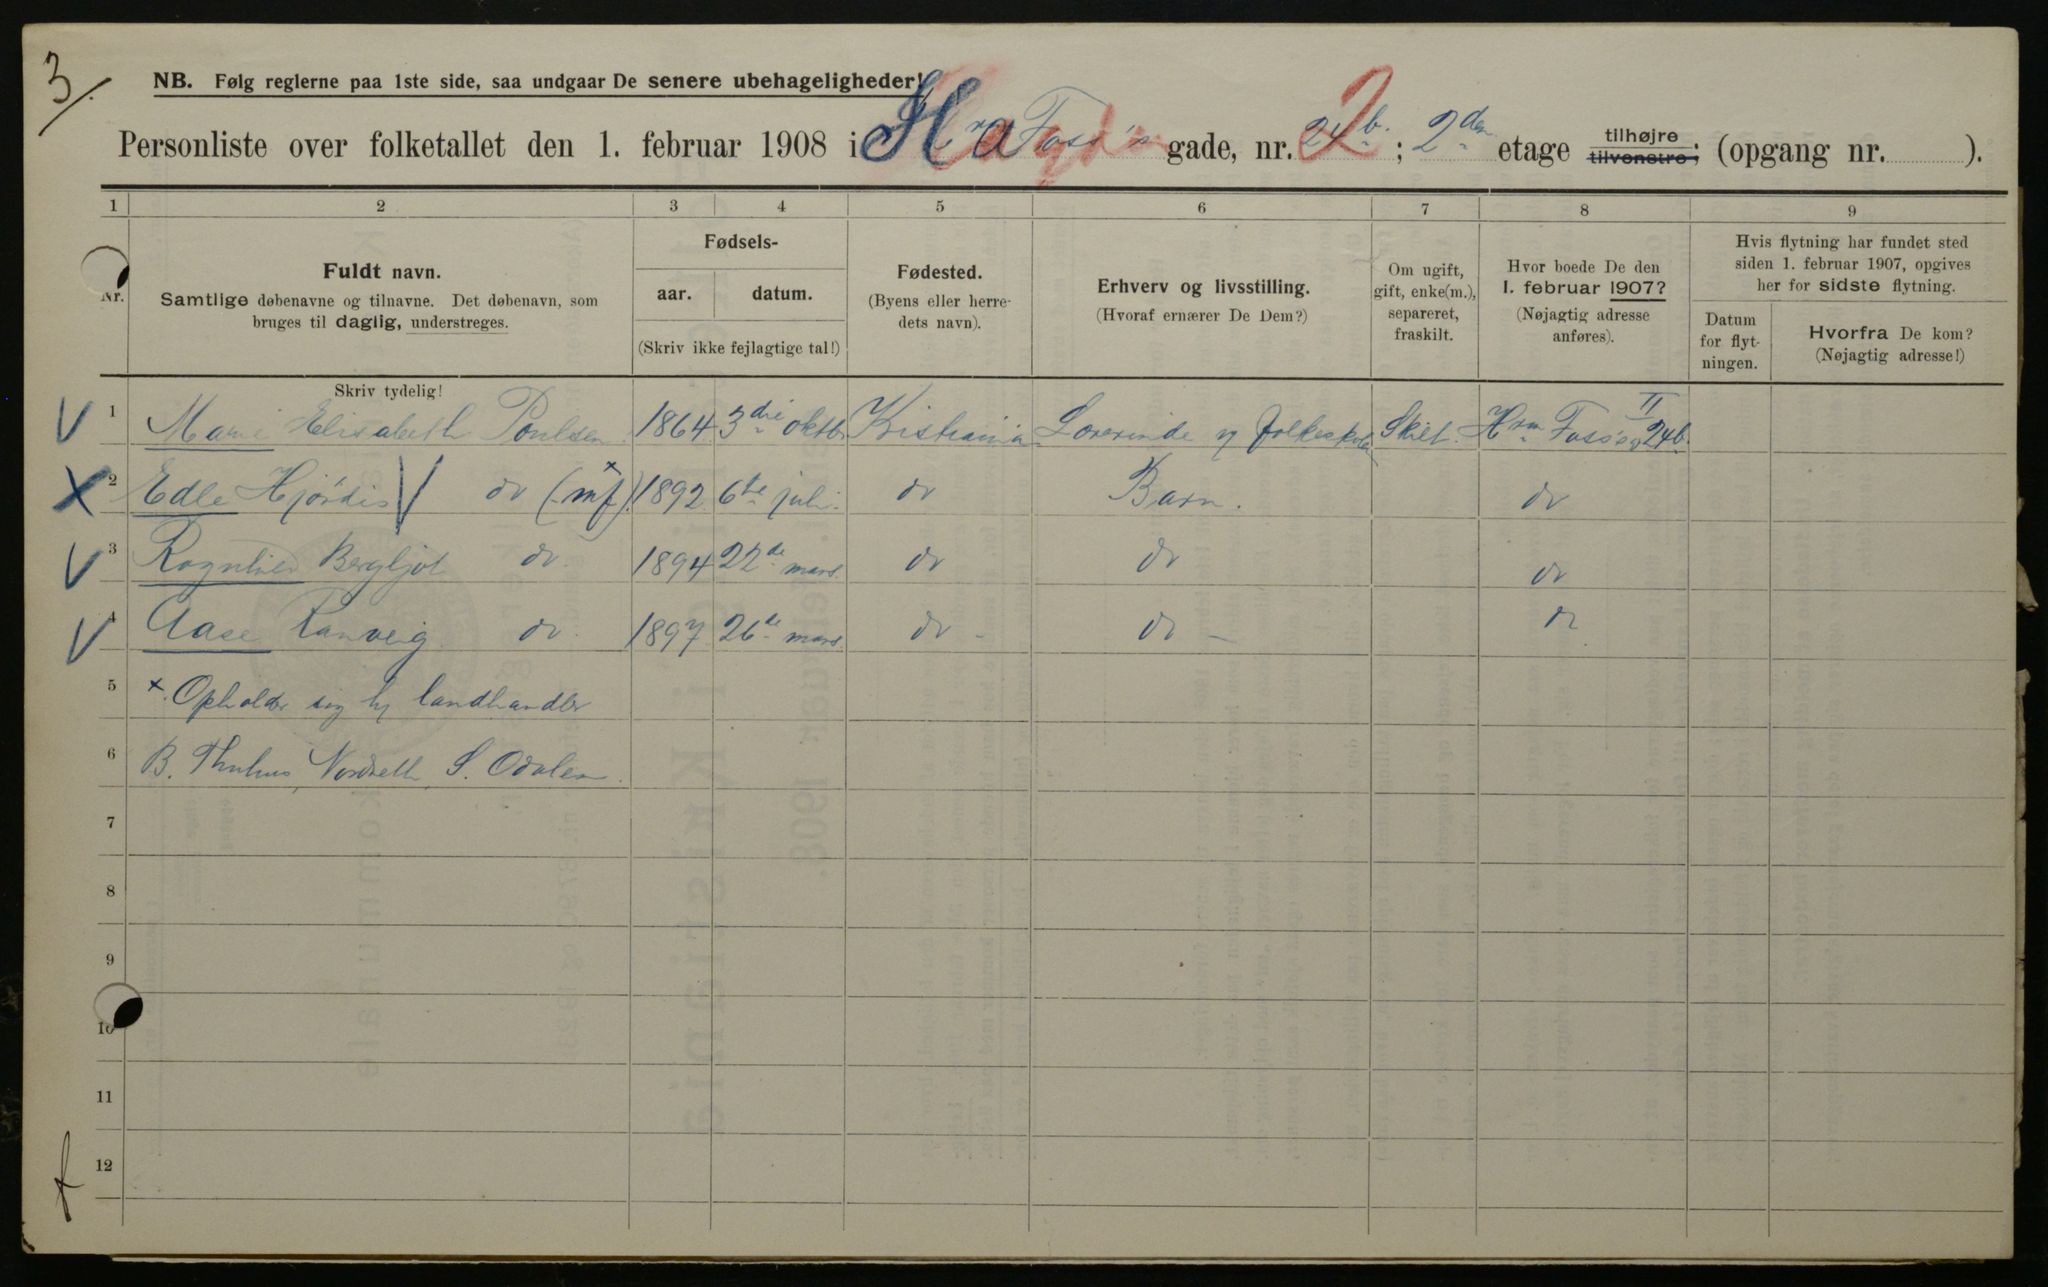 3.
NB. Følg reglerne paa 1ste side, saa undgaar De senere ubehageligheder!
Personliste over folketallet den 1. februar 1908 i Hrm Foss's gade, nr. 24b. 2 ; 2den etage tilhøjre tilvenstre; (opgang nr. ).
1 2 3 4 5 6 7 8 9
Nr.
Fuldt navn.
Samtlige døbenavne og tilnavne. Det døbenavn, som
bruges til daglig, understreges.
Skriv tydelig!
Fødsels-
aar. datum.
(Skriv ikke fejlagtige tal!)
Fødested.
(Byens eller herre-
dets navn).
Erhverv og livsstilling.
(Hvoraf ernærer De Dem?)
Om ugift,
gift, enke(m.),
separeret,
fraskilt.
Hvor boede De den
1. februar 1907?
(Nøjagtig adresse
anføres).
Hvis flytning har fundet sted
siden 1. februar 1907, opgives
her for sidste flytning.
Datum
for flyt-
ningen.
Hvorfra De kom?
(Nøjagtig adresse!)
1 Marie Elisabeth Poulsen 1864 3die oktbr Kristiania Lærerinde v folkeskolen Skilt Hrm Foss'sg 24b. II
2 Edle Hjørdis do (mf) x 1892 6te juli do Barn. do
3 Ragnhild Bergljot do 1894 22de mars do do do
4 Aase Ranveig do 1897 26de mars do do do
5 x Opholder sig h/ landhandler
6 B. Thuhus, Nordseth, S. Odalen
7
8
9
10
11
12